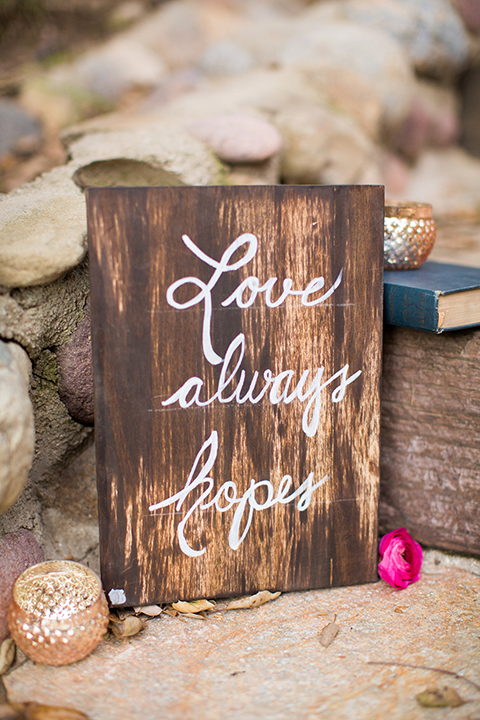 Love
always
hopes